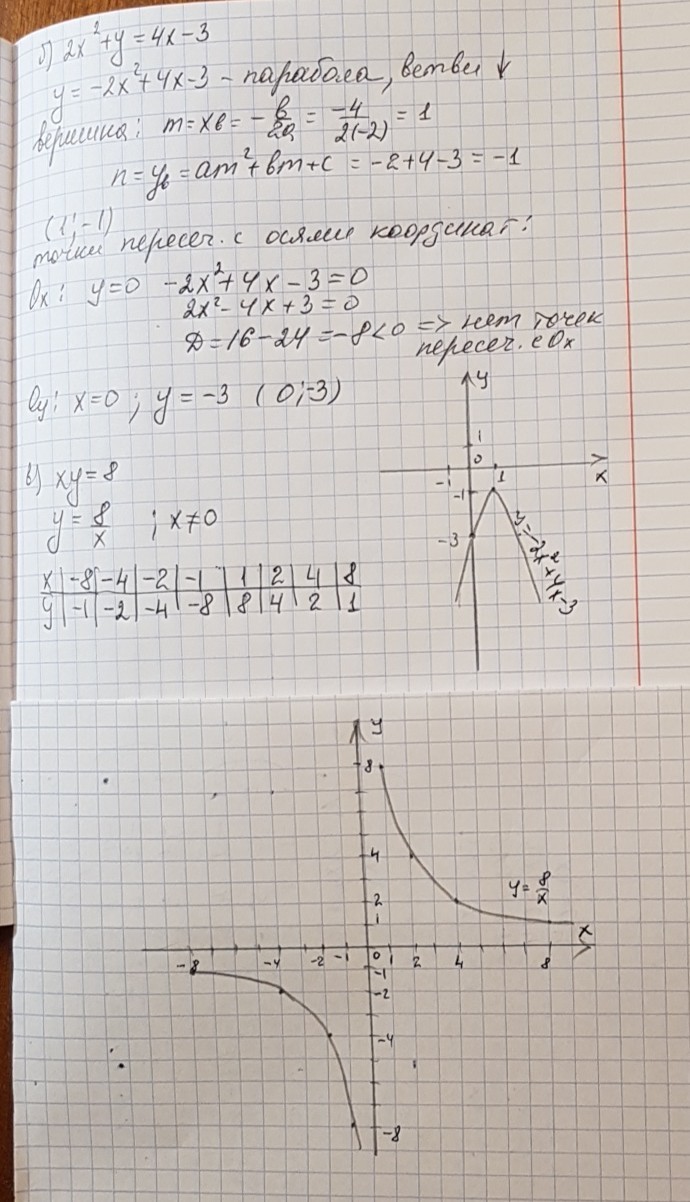 б) 2x²+y=4x-3
y=-2x²+4x-3 - парабола, ветви ↓
вершина: m=xв=-в/2a=-4/2(-2)=1
n=yв=am²+вm+c=-2+4-3=-1
(1;-1)
точки пересеч. с осями координат:
Ox: y=0 -2x²+4x-3=0
2x²-4x+3=0
D=16-24=-8<0 => нет точек
пересеч. с Ox
Oy: x=0; y=-3 (0;-3)
y
1
0
-1
1
x
-1
-3
y=-2x²+4x-3
в) xy=8
y=8/x ; x≠0
x | -8 | -4 | -2 | -1 | 1 | 2 | 4 | 8
y | -1 | -2 | -4 | -8 | 8 | 4 | 2 | 1
y
8
4
2
1
y=8/x
x
-8 -4 -2 -1 0 1 2 4 8
-1
-2
-4
-8